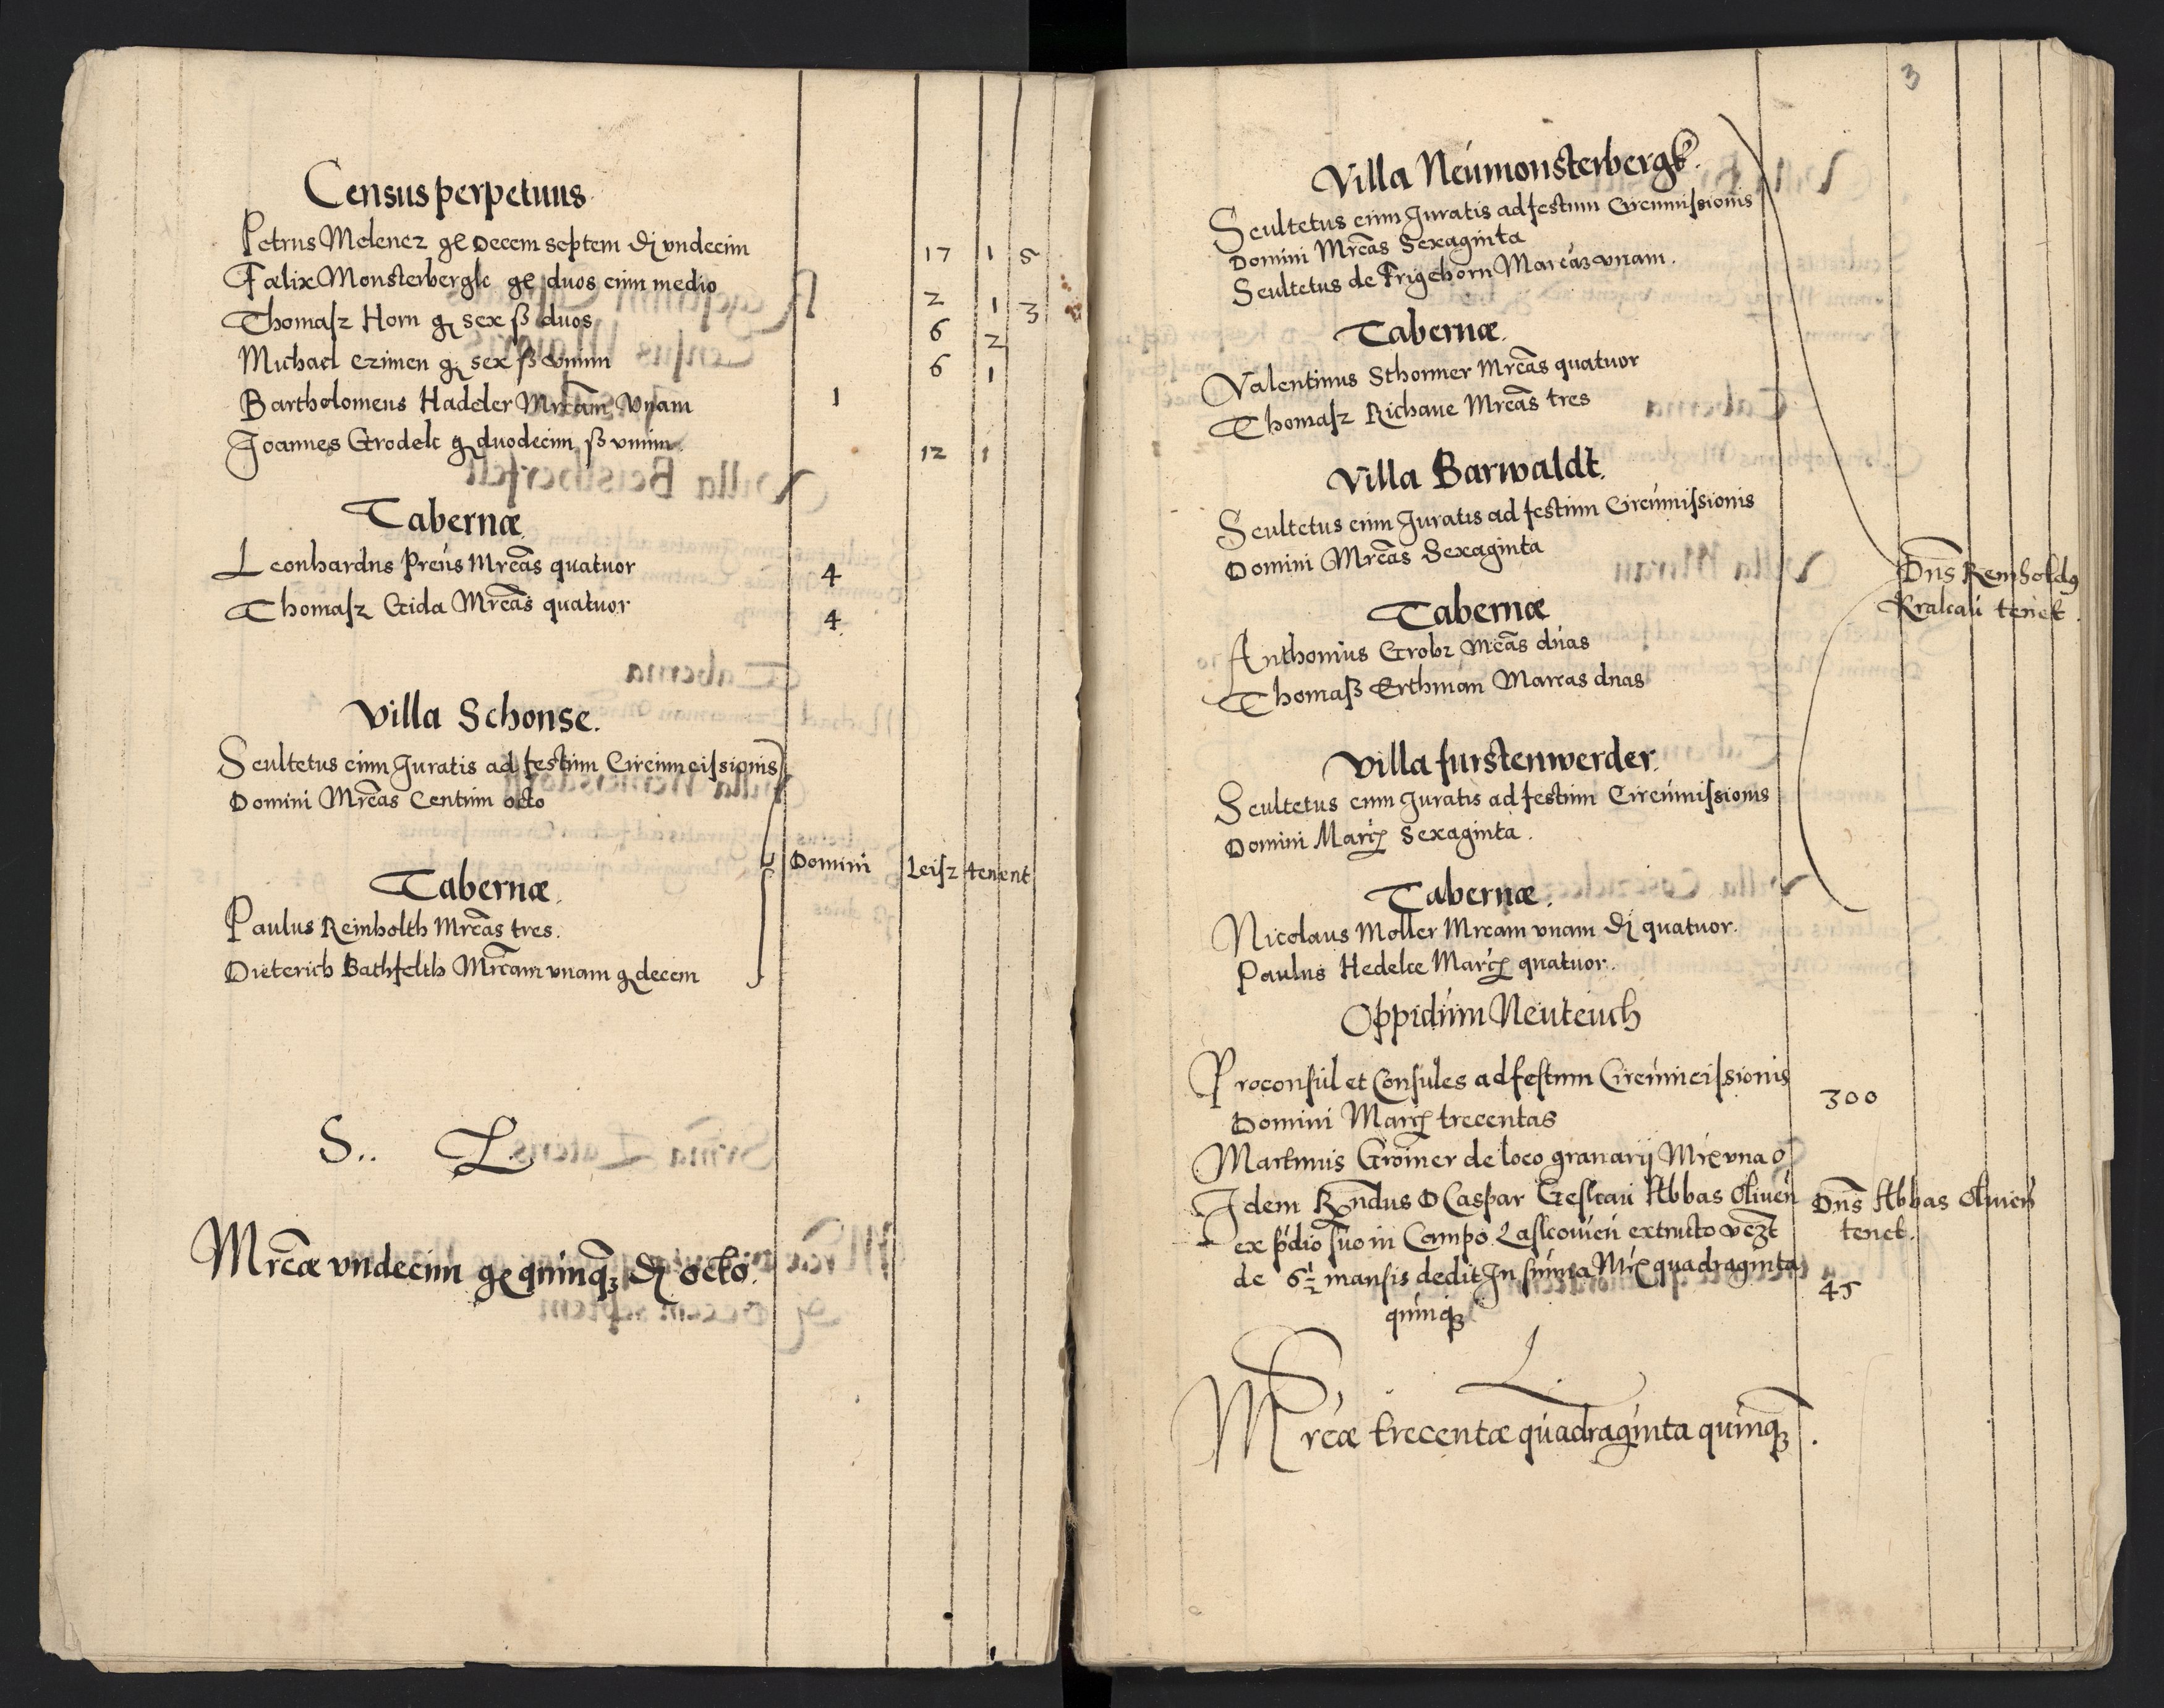 Census perpetuus
Petrus Melencz gͤ Decem septem ₰ vndecim 17 1 5
Fœlix Monsterbergk gͤ duos cum medio 2 1 3
Thomasz Horn g sex ß duos 6 2
Michael Czimen g sex ß vnum 6 1
Bartholomeus Hadeler Mrcam Vnam 1
Joannes Grodek g duodecim ß vnum 12 1
Tabernæ
Leonhardus Preus Mrcas quatuor 4
Thomasz Gida Mrcas quatuor 4
Villa Schonse.
Scultetus cum Juratis ad festum Circumcissionis
Domini Mrcas Centum octo
Domini Leisz tenent
Tabernæ.
Paulus Reinholth Mrcas tres.
Dieterich Bathfelth Mrcam vnam g decem
S.. L.
Mrcæ vndecim g quinqȝ ₰ octo.
3
Villa Neumonsterbergk.
Scultetus cum Juratis ad festum Circumissionis
Domini Mrcas Sexaginta
Scultetus de Frigehorn Marcas vnam.
Tabernæ.
Valentinus Sthormer Mrcas quatuor
Thomasz Richaue Mrcas tres
Villa Barwaldt.
Scultetus cum Juratis ad festum Circumissionis
Domini Mrcas Sexaginta
Dns Reinholdꝯ
Kralcau tenet.
Tabernæ
Anthonius Grobz Mcas duas
Thomasß Erthman Marcas duas
Villa furstenwerder.
Scultetus cum Juratis ad festum Circumissionis
Domini Marc Sexaginta.
Tabernæ.
Nicolaus Moller Mrcam vnam ₰ quatuor.
Paulus Hedelce Marc quatuor.
Oppidum Neuteich
Proconsul et Consules ad festum Circumcissionis
Domini Marc trecentas 300
Martinus Gromer de loco granarij Mrc vna
Idem Rndus D Caspar Geslcau Abbas Oliuen Dns Abbas Oliuen
ex pdio suo in Campo Laslcouien extructo vezt tenet.
de 6½ mansis dedit In summa Mrc quadraginta 45
quinqȝ
S. L.
Mrcæ trecentæ quadraginta quinqȝ.